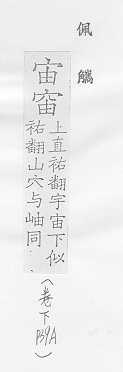 佩觿
宙宙
上直祐翻宇宙下似
祐翻山穴与岫同
(卷下
P39A)